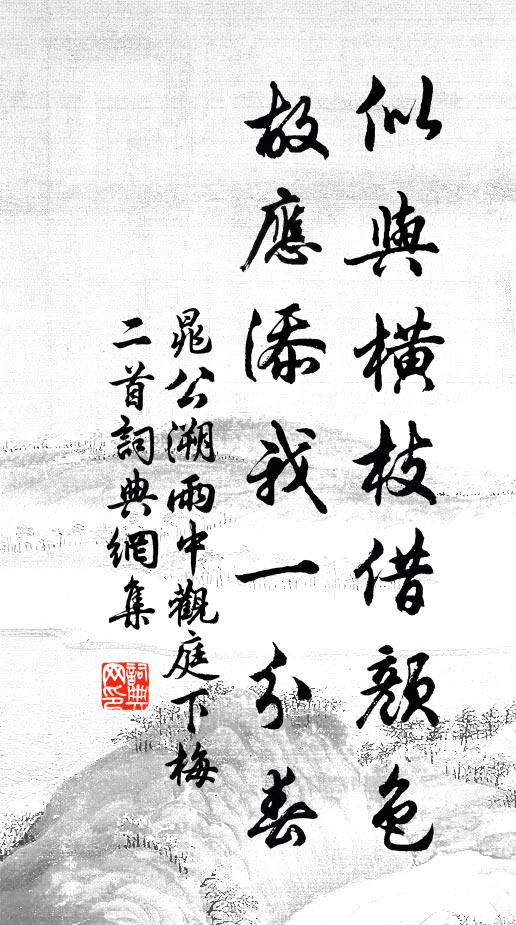 似與橫枝借顏色
故應添我一分春
晁公溯雨中觀庭下梅
二首詞典網集
詞典網印